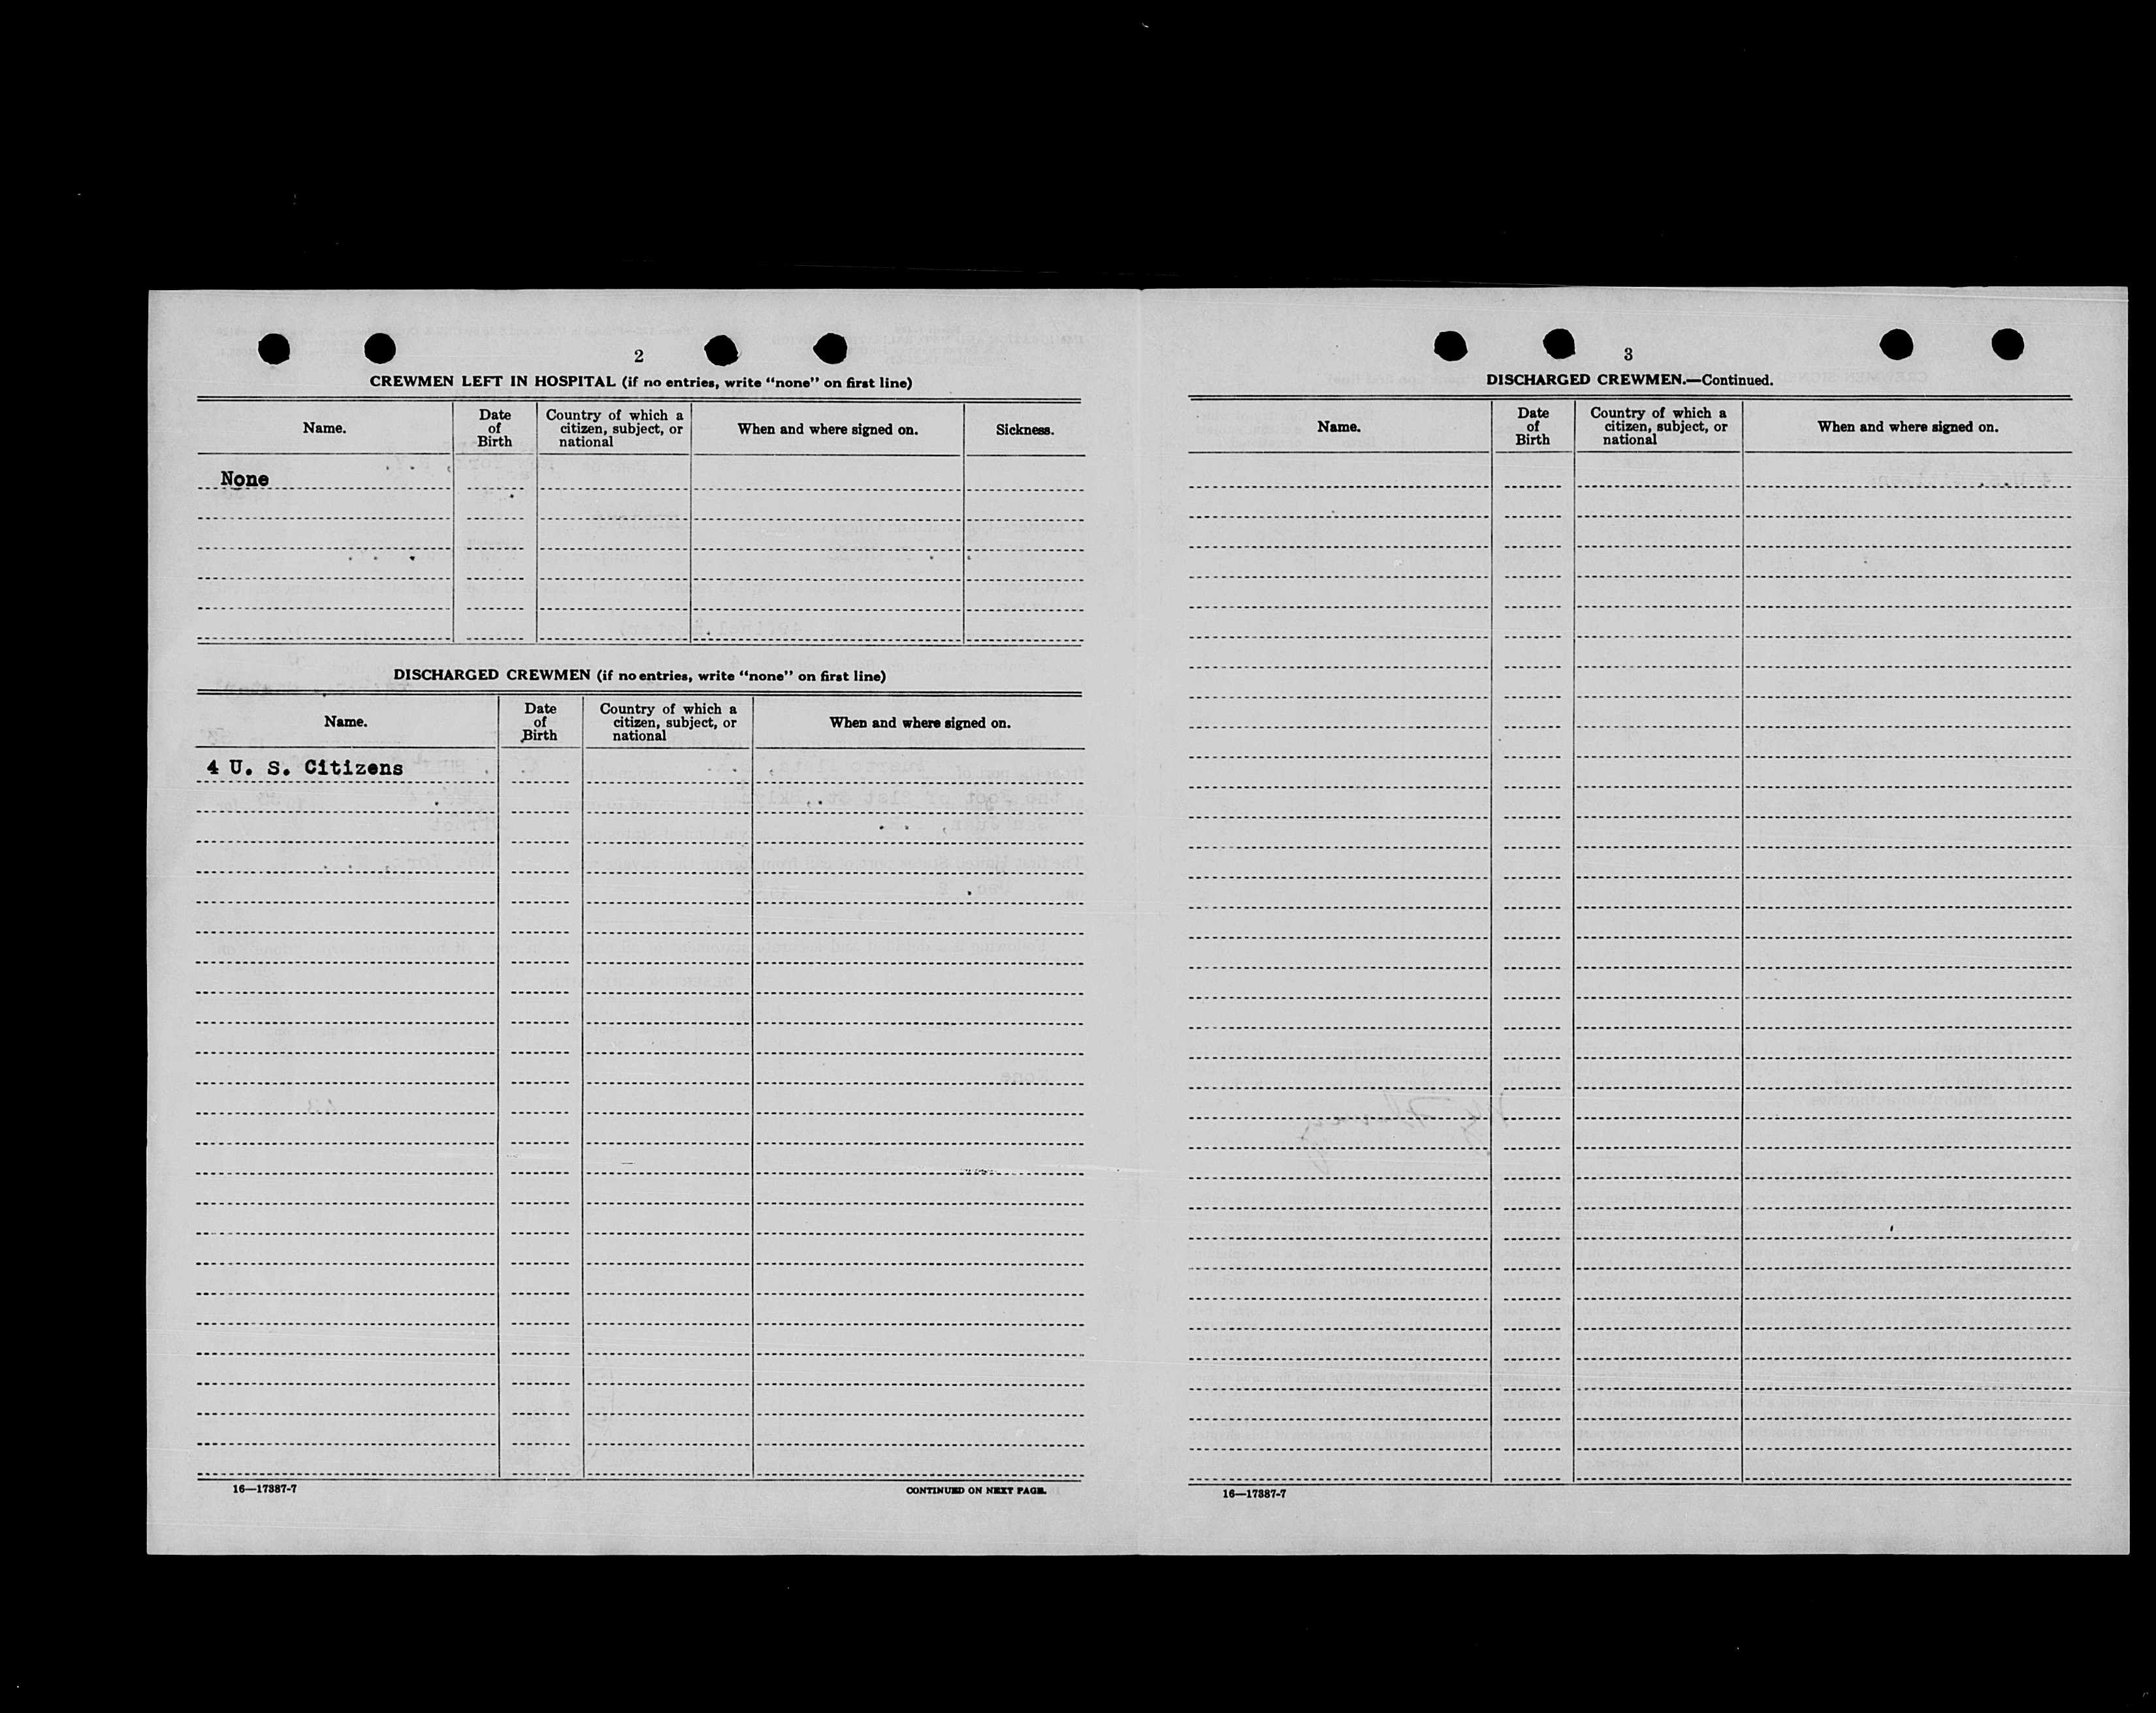 2
CREWMEN LEFT IN HOSPITAL (if no entries, write “none” on first line)
Name.
Date of Birth
Country of which a citizen, subject, or national
When and where signed on.
Sickness.
None
DISCHARGED CREWMEN (if no entries, write “none” on first line)
Name.
Date of Birth
Country of which a citizen, subject, or national
When and where signed on.
4 U. S. Citizens
16—17387-7
CONTINUED ON NEXT PAGE.
3
DISCHARGED CREWMEN.—Continued.
Name.
Date of Birth
Country of which a citizen, subject, or national
When and where signed on.
16—17387-7